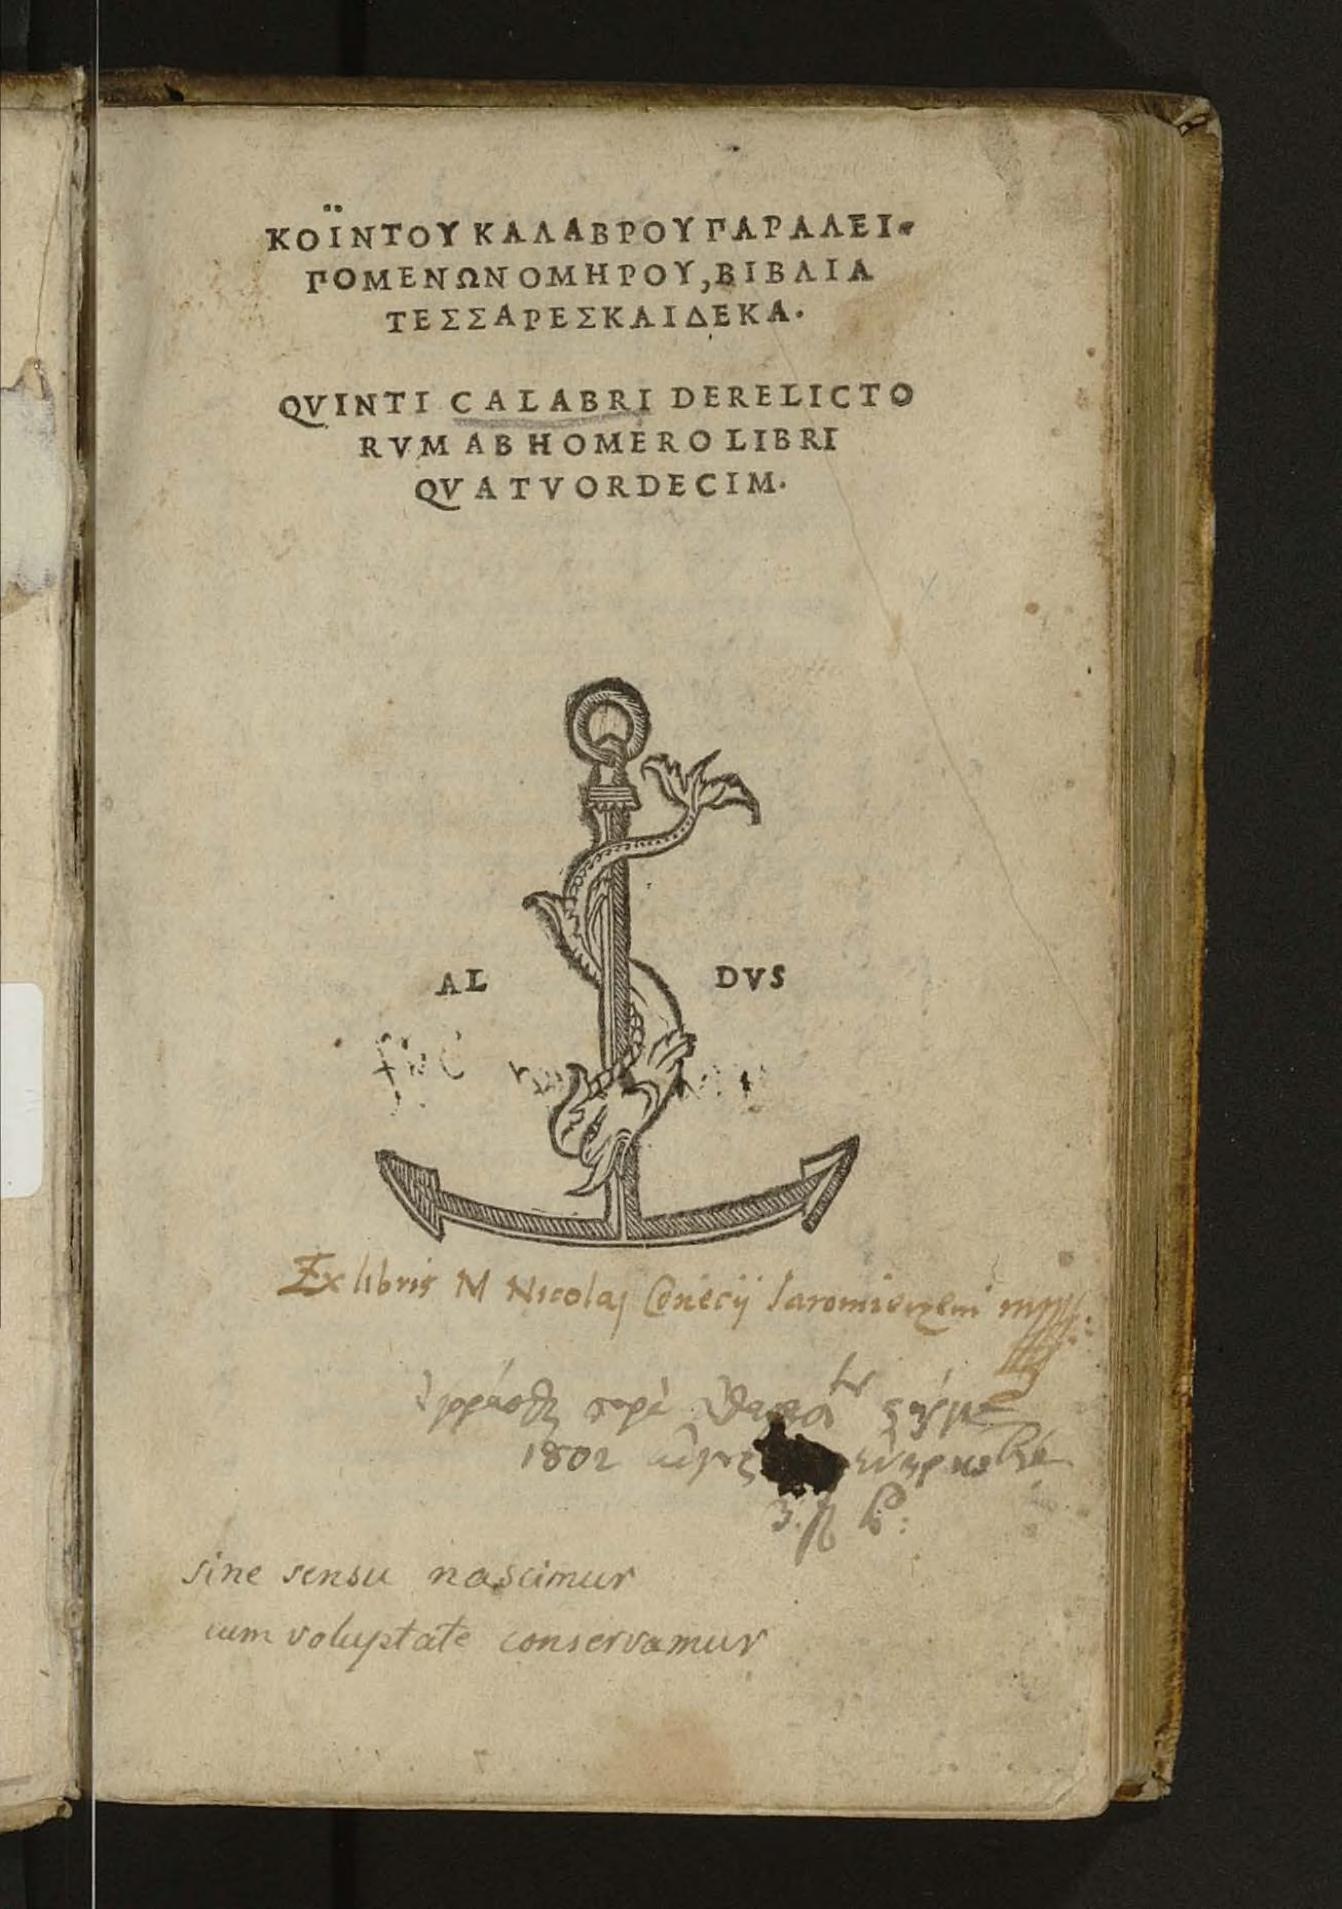 ΚΟΪΝΤΟΥ ΚΑΛΑΒΡΟΥ ΠΑΡΑΛΕΙ-
ΠΟΜΕΝΩΝ ΟΜΗΡΟΥ, ΒΙΒΛΙΑ
ΤΕΣΣΑΡΕΣΚΑΙΔΕΚΑ.
QVINTI CALABRI DERELICTO
RVM AB HOMERO LIBRI
QVATVORDECIM.
AL DVS
Ex libris M Nicolaj
παρὰ
1802
sine sensu nascimur
cum voluptate conservamur